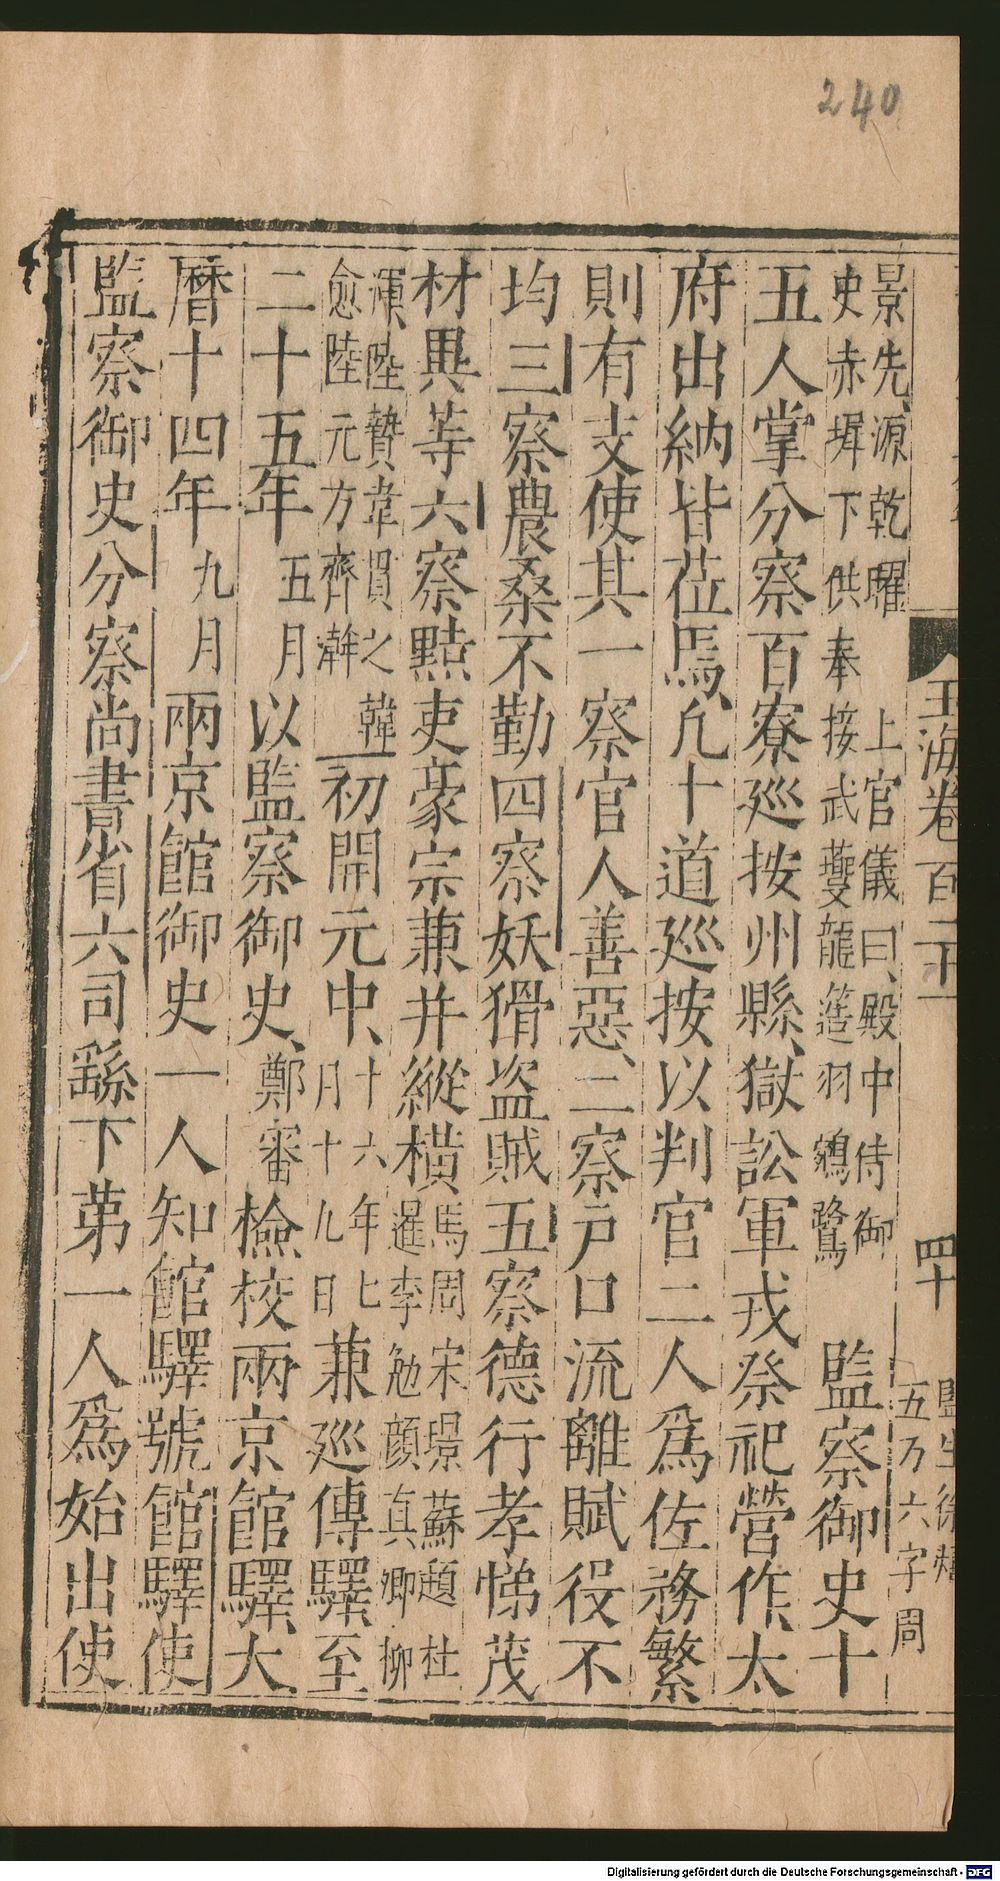 240
玉海卷百二十一
四十
五万六字周
景先源乾曜　上官儀曰殿中侍御
史赤墀下供奉接武夔龍簉羽鵷鷺　監察御史十
五人掌分察百寮巡按州縣獄訟軍戎祭祀營作太
府出納皆莅焉凢十道巡按以判官二人爲佐務繁
則有支使其一察官人善惡二察戸口流離賦役不
均三察農桑不勤四察妖猾盗賊五察德行孝悌茂
材異等六察黠吏豪宗兼并縱横馬周宋璟蘇頲杜
暹李勉顔真卿柳
渾陸贄韋貫之　韓
愈陸元方齊澣　初開元中十六年七
月十九日兼巡傳驛至
二十五年五月以監察御史鄭審檢校兩京館驛大
曆十四年九月兩京館御史一人知館驛號館驛使
監察御史分察尚書省六司繇下第一人爲始出使
Digitalisierung gefördert durch die Deutsche Forschungsgemeinschaft - DFG